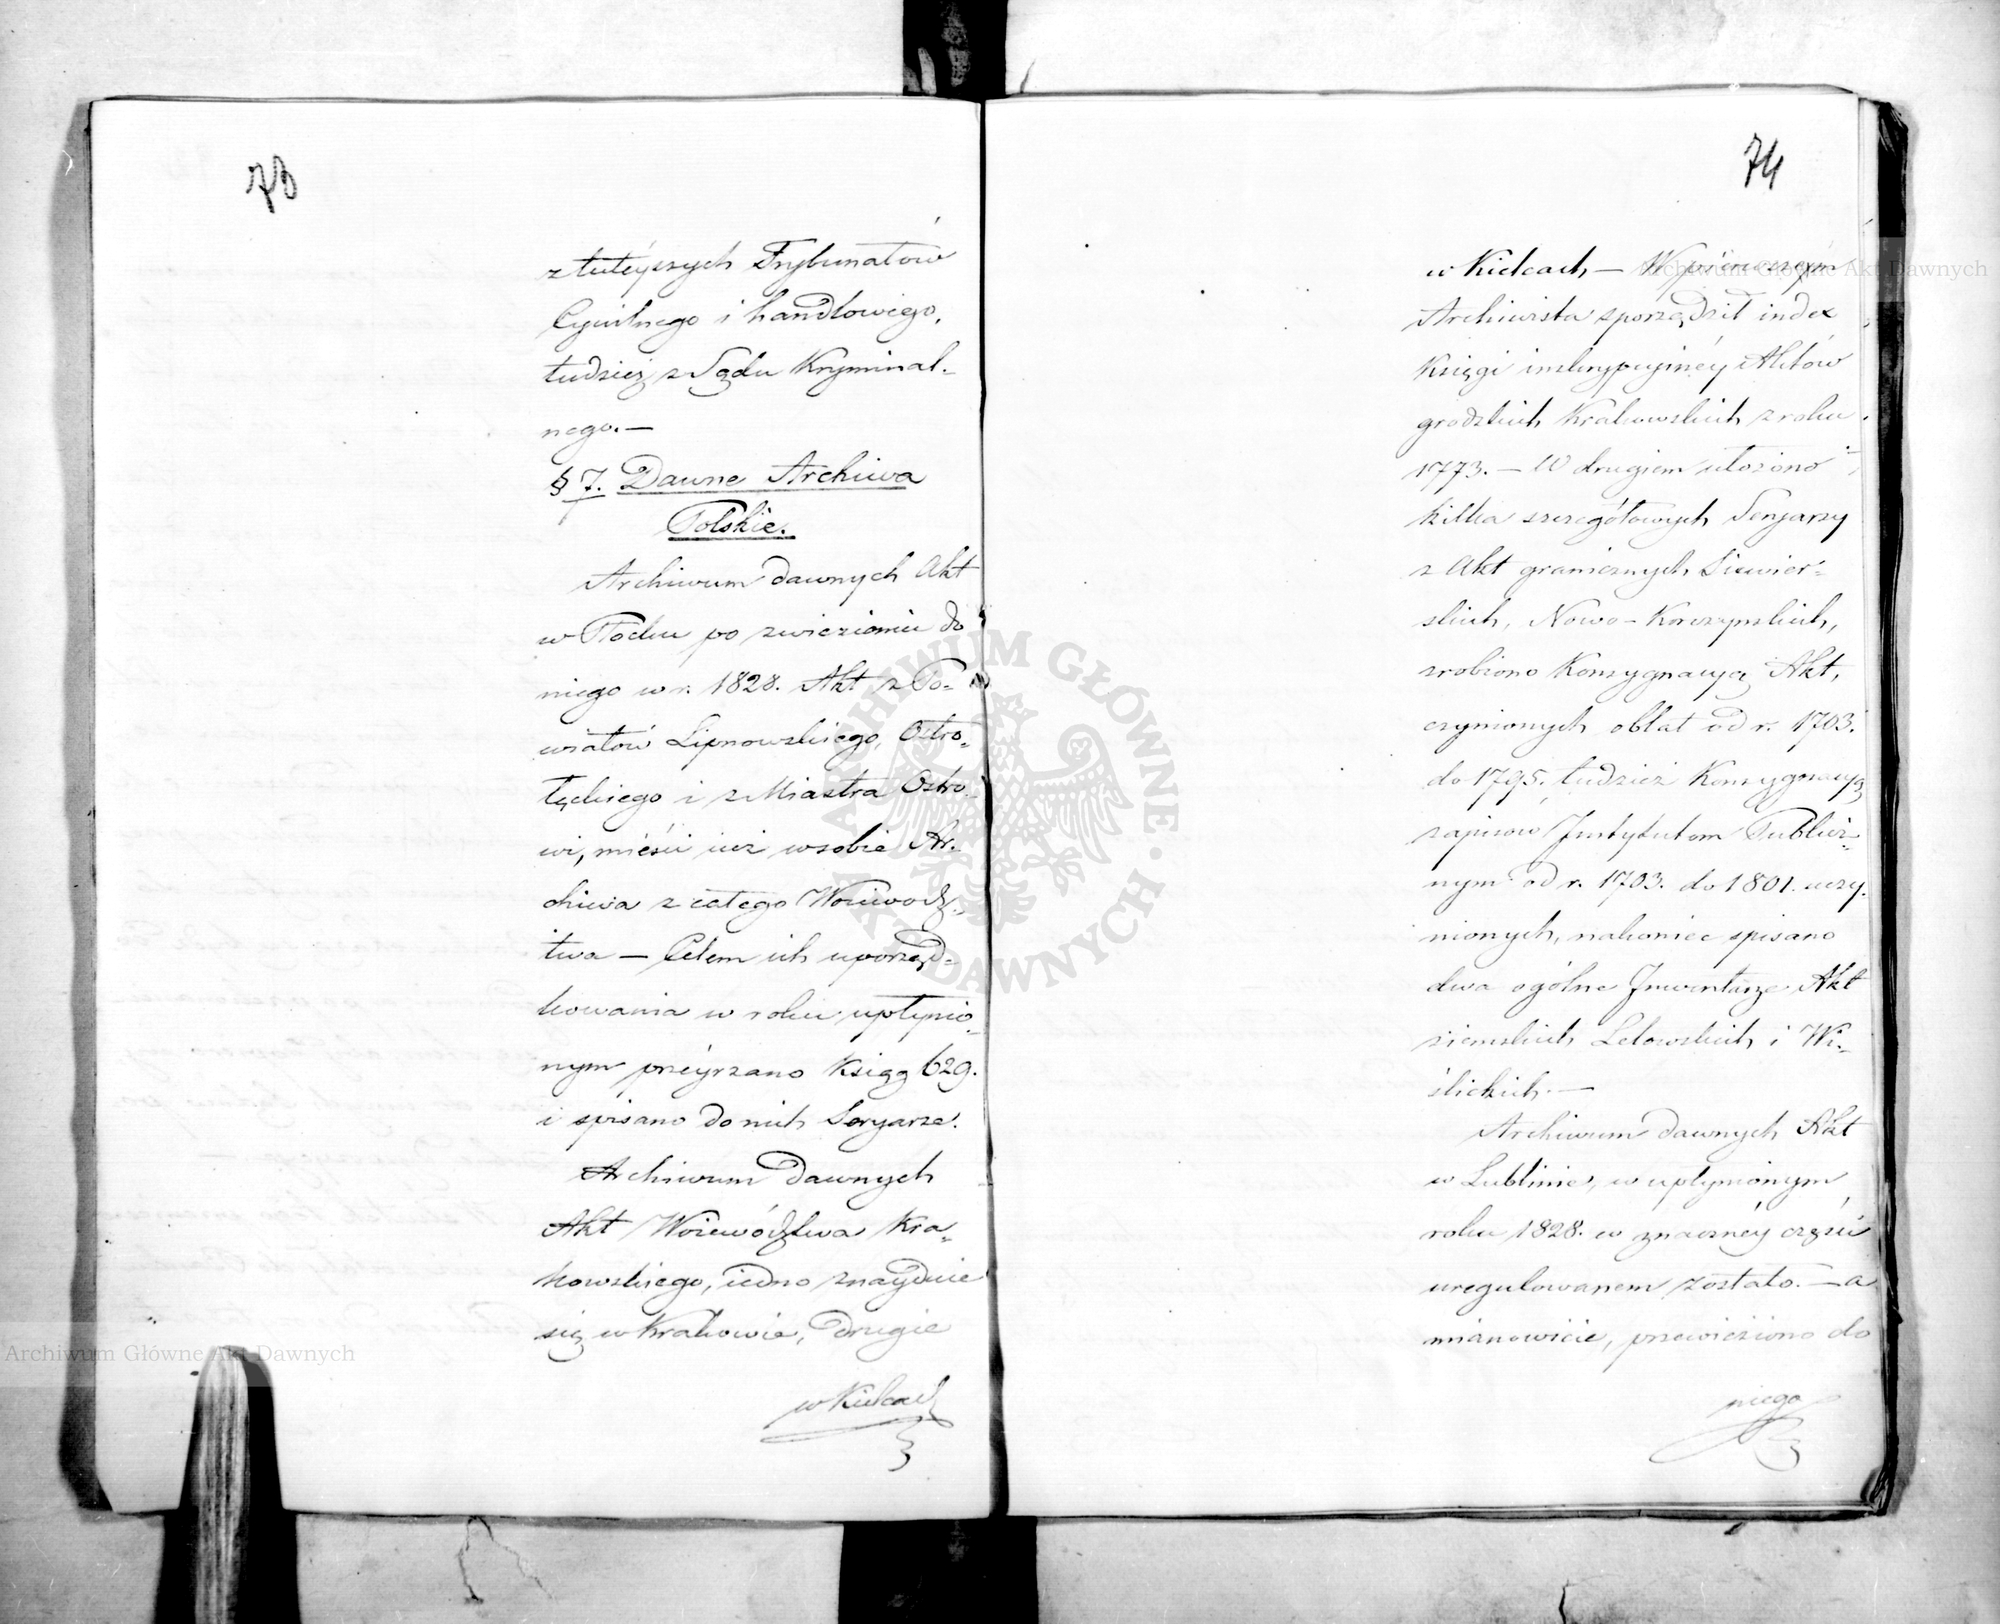 73
z tutéyszych Trybunałów
Cywilnego i handlowego,
tudzież z Sądu Kryminal-
nego.—
§ 7. Dawne Archiwa
Polskie.
Archiwum dawnych Akt
w Płocku po zwiezieniu do
niego w r. 1828. Akt z Po-
wiatów Lipnowskiego, Ostro-
łęckiego i z Miasta Ostro-
wi, mieści iuż w sobie Ar-
chiwa z całego Woiewodz-
twa — Celem ich uporząd-
kowania w roku upłynio-
nym przéyrzano Ksiąg 629.
i spisano do nich Seryarze.
Archiwum Dawnych
Akt Woiewództwa Kra-
kowskiego, iedno znayduie
się w Krakowie, drugie
w Kielcach
74
w Kielcach — W pierwszym
Archiwista sporządził index
Księgi inskrypcyinéy Aktów
grodzkich Krakowskich z roku
1773. — W drugiem ułożono
kilka szczegółowych Seryarzy
z Akt granicznych Siewier-
skich, Nowo-Korczynskich,
zrobiono Konsygnacyą Akt,
czynionych oblat od r. 1703.
do 1795. tudzież Konsygnacyą
zapisów Instytutom Publicz-
nym od r. 1703. do 1801. uczy-
nionych, nakoniec spisano
dwa ogólne Inwentarze Akt
ziemskich Lelowskich i Wi-
ślickich.—
Archiwum dawnych Akt
w Lublinie, w upłynionym
roku 1828. w znacznéy części
uregulowanem zostało. — a
mianowicie, przewieziono do
niego
ARCHIWUM GŁÓWNE AKT DAWNYCH
Archiwum Główne Akt Dawnych
Archiwum Główne Akt Dawnych